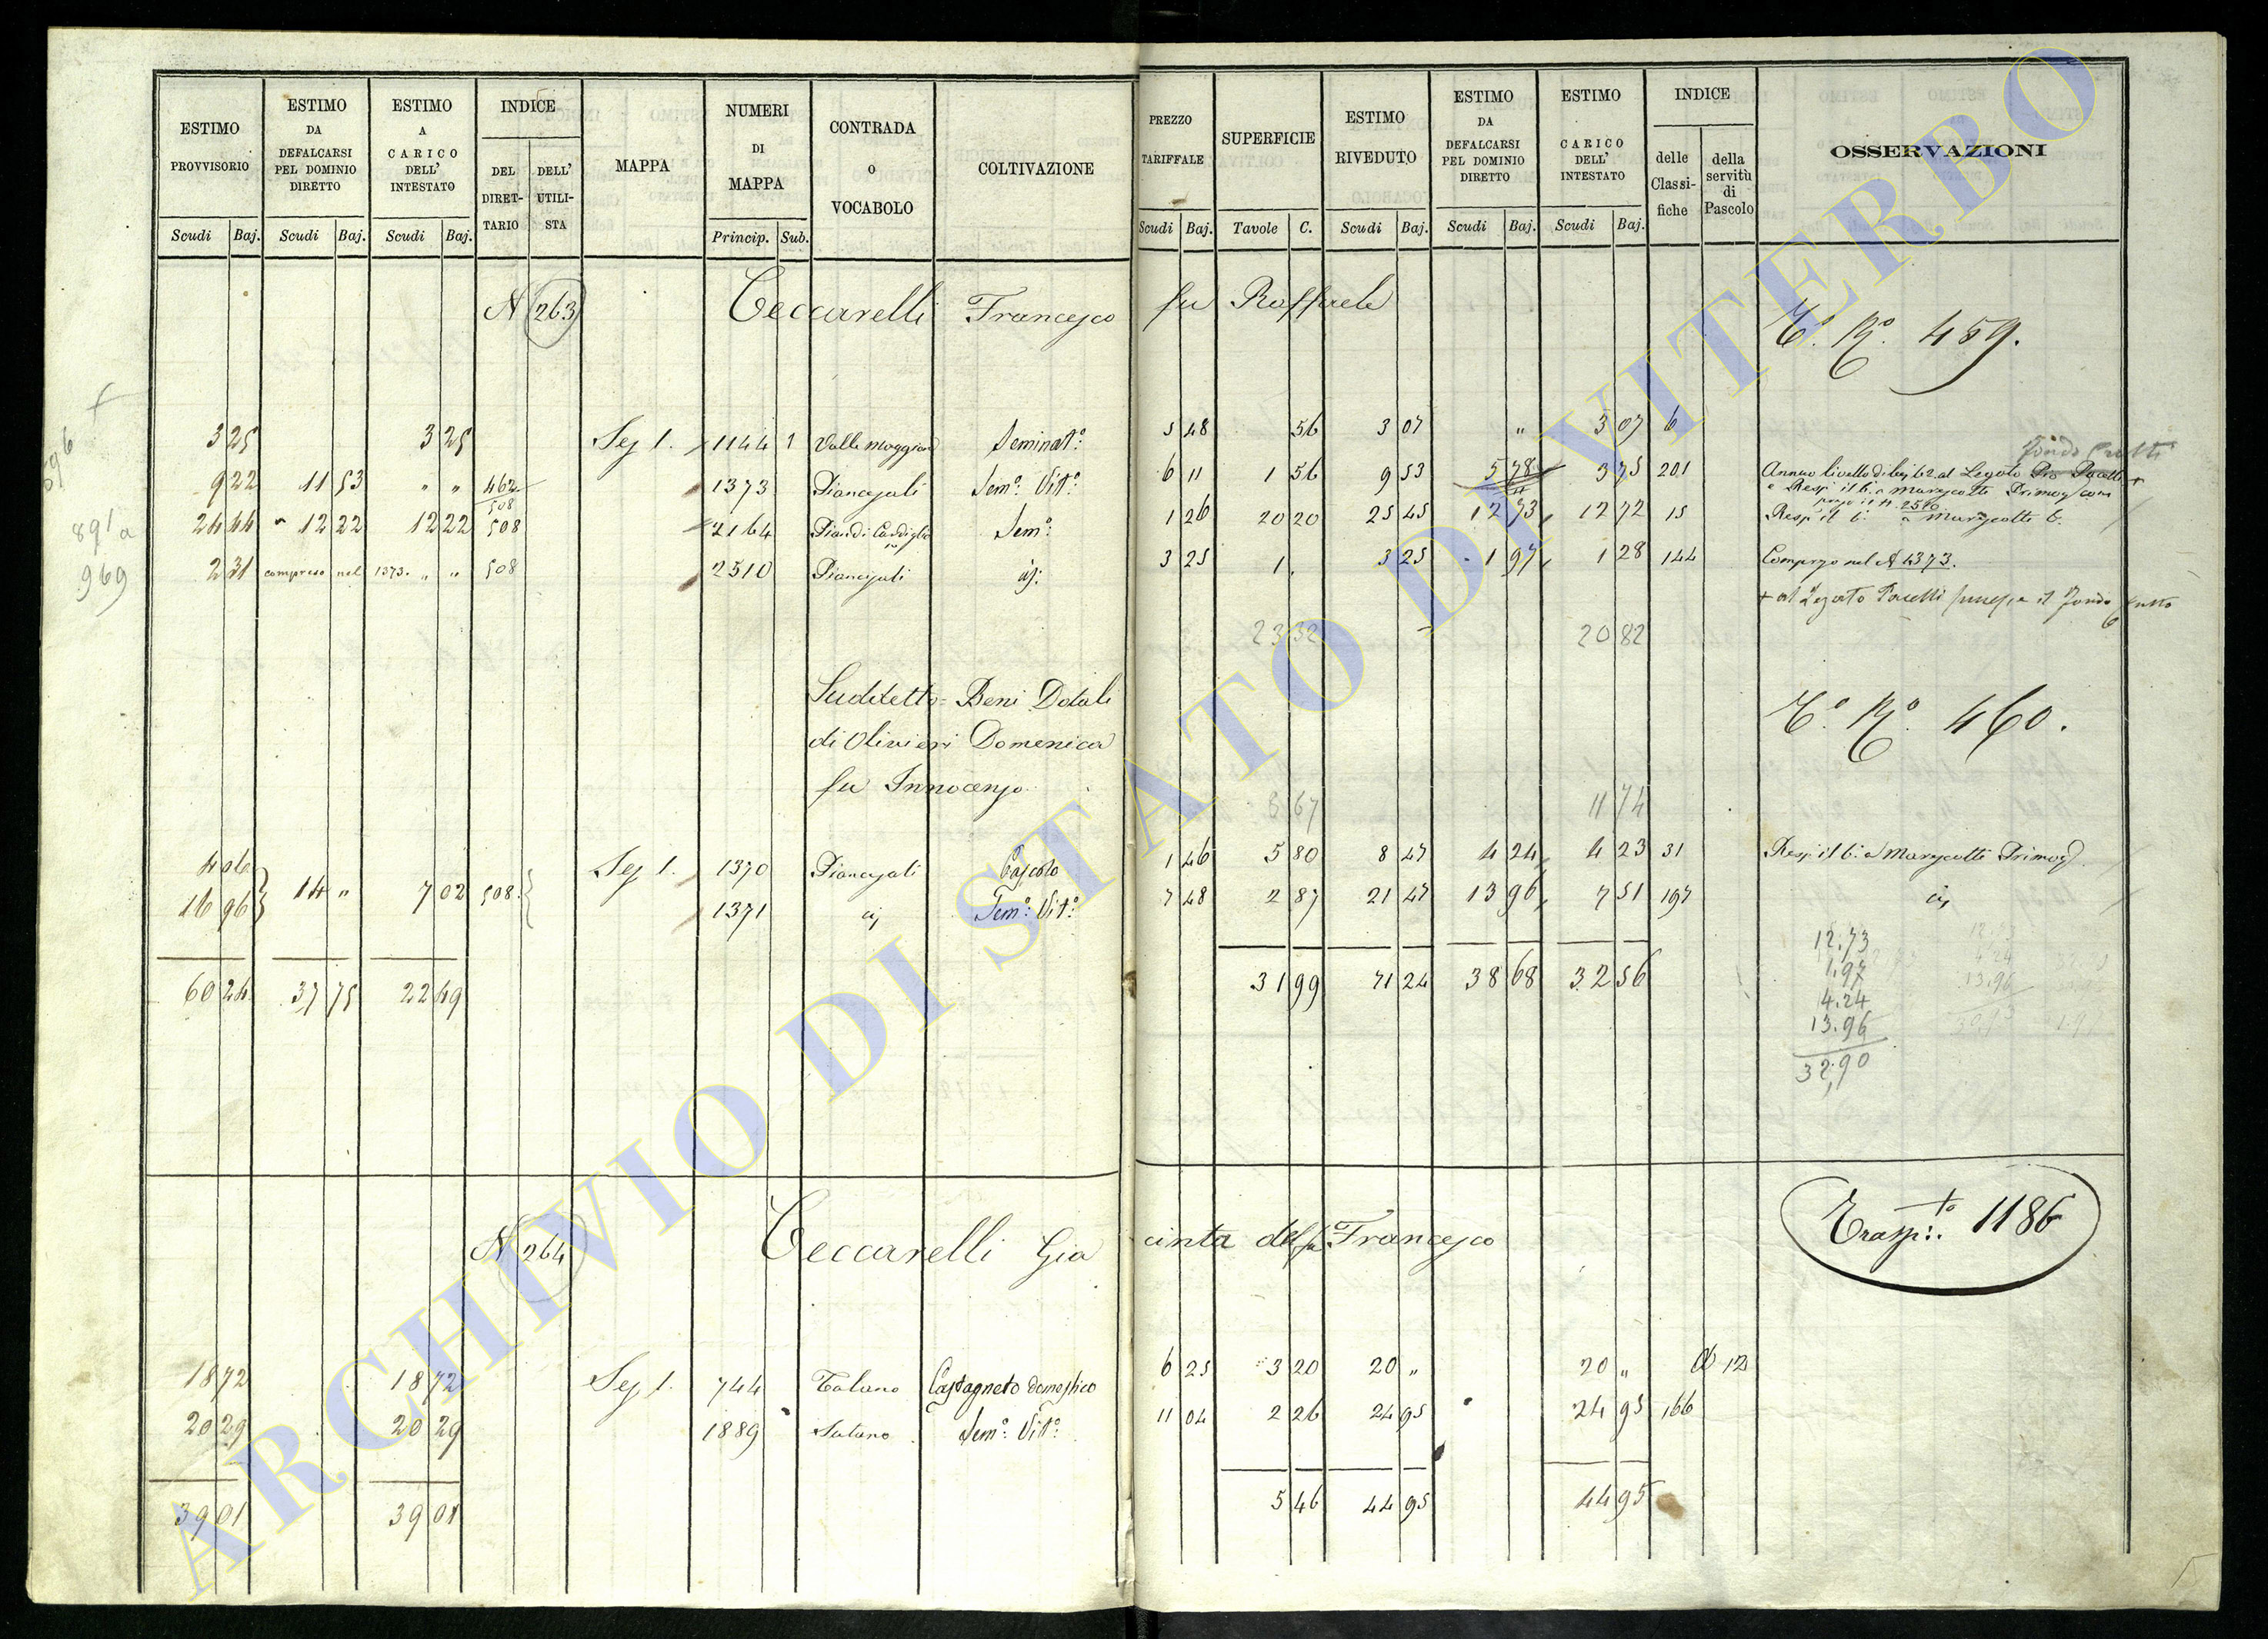 ESTIMO PROVVISORIO
ESTIMO DA DEFALCARSI PEL DOMINIO DIRETTO
ESTIMO A CARICO DELL' INTESTATO
INDICE
DEL DIRET- TARIO
DELL' UTILI- STA
MAPPA
NUMERI DI MAPPA
CONTRADA O VOCABOLO
COLTIVAZIONE
PREZZO TARIFFALE
SUPERFICIE
ESTIMO RIVEDUTO
ESTIMO DA DEFALCARSI PEL DOMINIO DIRETTO
ESTIMO A CARICO DELL' INTESTATO
INDICE
delle Classi- fiche
della servitù di Pascolo
OSSERVAZIONI
Scudi Baj. Scudi Baj. Scudi Baj. Princip. Sub. Scudi Baj. Tavole C. Scudi Baj. Scudi Baj. Scudi Baj.
N 263 Ceccarelli Francesco fu Raffaele
E.º R.º 459.
3 25 3 25 Sez 1. 1144 1 Seminat.º 5 48 56 3 07 " 3 07 6
9 22 11 53 " " 462 508 1373 Sem.º Vit.º 6 11 1 56 9 53 5 78 3 75 201 Annuo livello di baj 62 al Legato
24 44 12 22 12 22 508 2164 Sem.º 1 26 20 20 25 45 12 73 12 72 15
2 31 compreso nel 1373. " " 508 2510 3 25 1. 3 25 1 97 1 28 144 Compreso nel N 1373.
23 32 20 82
596
891a
969
Suddetto = Beni Dotali
di Olivieri Domenica
fu Innocenzo
E.º R.º 460.
8 67 11 74
4 06 14 " 7 02 508. Sez 1. 1370 Pascolo 1 46 5 80 8 47 4 24 4 23 31
16 96 1371 Sem.º Vit.º 7 48 2 87 21 47 13 96 7 51 197
60 24 37 75 22 49 31 99 71 24 38 68 32 56
12.73
1.97
4.24
13.96
32,90
N 264 Ceccarelli Giacinta del fu Francesco
1186
18 72 18 72 Sez 1. 744 Castagneto domestico 6 25 3 20 20 " 20 " 12
20 29 20 29 1889 Sem.º Vit.º 11 04 2 26 24 95 24 95 166
39 01 39 01 5 46 44 95 44 95
ARCHIVIO DI STATO DI VITERBO